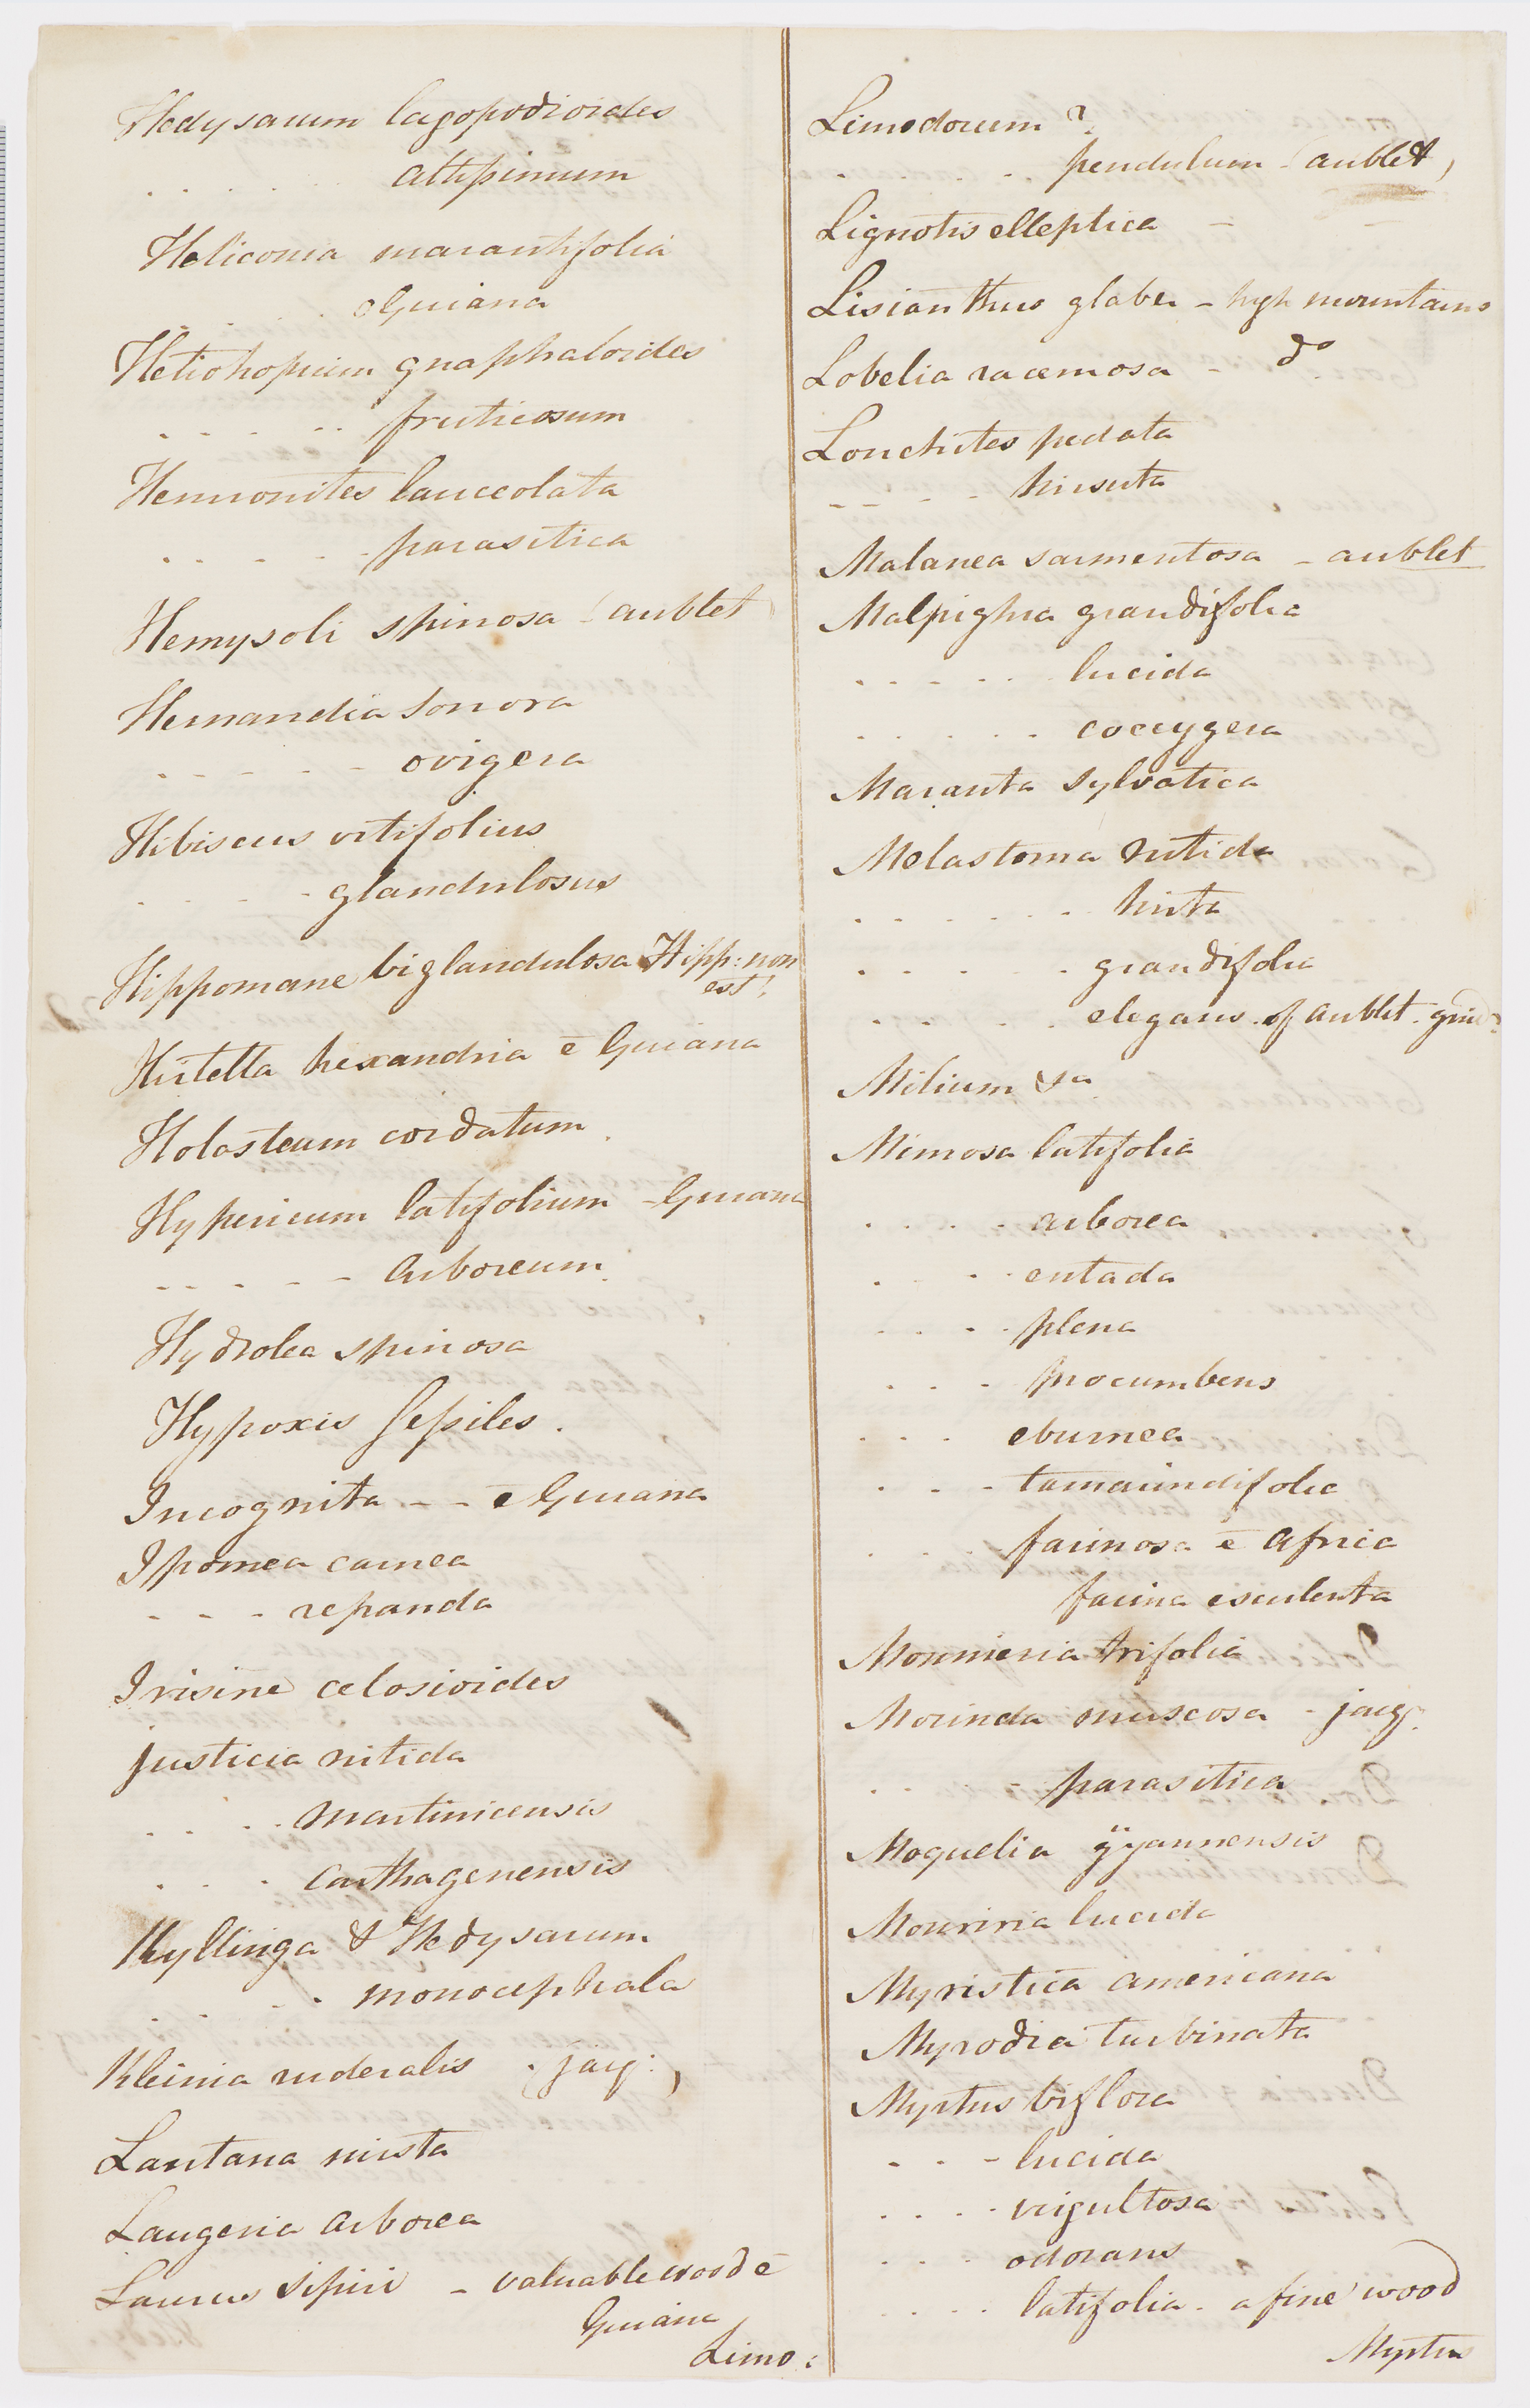 Hedysarum lagopodioides
. . . . . altissimum
Heliconia marantifolia
. . . . e Guiana
Heliotropium gnaphaloides
. . . . . . fruticosum
Hemionites lanceolata
. . . . . - parasitica
Hemysoli spinosa - (aublet)
Hernandia sonora
. - - - . - ovigera
Hibiscus vitifolius
. . . . - glandulosus
Hippomane biglandulosa Hipp: non
est!
Hirtella hexandria ē Guiana
Holosteum cordatum
Hypericum latifolium - Guiana
- - . - . - - arboreum
Hydrolea spinosa
Hypoxis sessiles.
Incognita - - ē Guiana
Ipomea carnea
- - - repanda
Irisine celosioides
Justicia nitida
. . . . martinicensis
. . . carthagenensis
Kyllinga & Hedysarum
. . . . monocephala
Kleinia ruderalis (jacq:)
Lantana mista
Laugeria arborea
Laurus sipiri - valuable wood ē
Guiana
Limo:
Limodorum ?
. . . . . pendulum - (aublet)
Lignotis elleptica - -
Lisianthus glaber - high mountains
Lobelia racemosa - do
Lonchites pedata
- - - - - hirsuta
Malanea sarmentosa - aublet
Malpighia grandifolia
. . - . . lucida
. . . . . coccygera
Maranta sylvatica
Melastoma nitida
. . . . . . hirta
. . . . . . grandifolia
. . . . . elegans. of aublet.
Milium &a
Mimosa latifolia
. . . . arborea
. . . entada
. . . . plena
. . . procumbens
. . . eburnea
. . - tamarindifolia
. . . farinosa ē Africa
farina esculenta
Monnieria trifolia
Morinda muscosa - jacq.
. . - parasitica
Moquelia gÿannensis
Mouriria lucida
Myristica americana
Myrodia turbinata
Myrtus biflora
. . - lucida
. . . . virgultosa
. . . odorans
. . . . latifolia. a fine wood
Myrtus